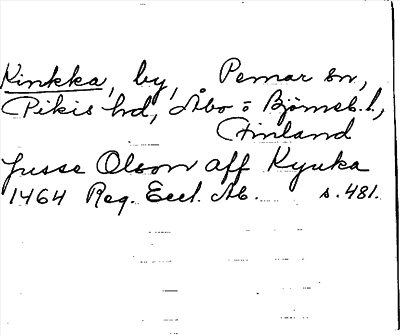 Kinkka, by, Pemar sn,
Pikis hd, Åbo o Björneb. l,
Finland
Jusse Olson aff Kyuka
1464 Reg. Eccl. Ab. s. 481.